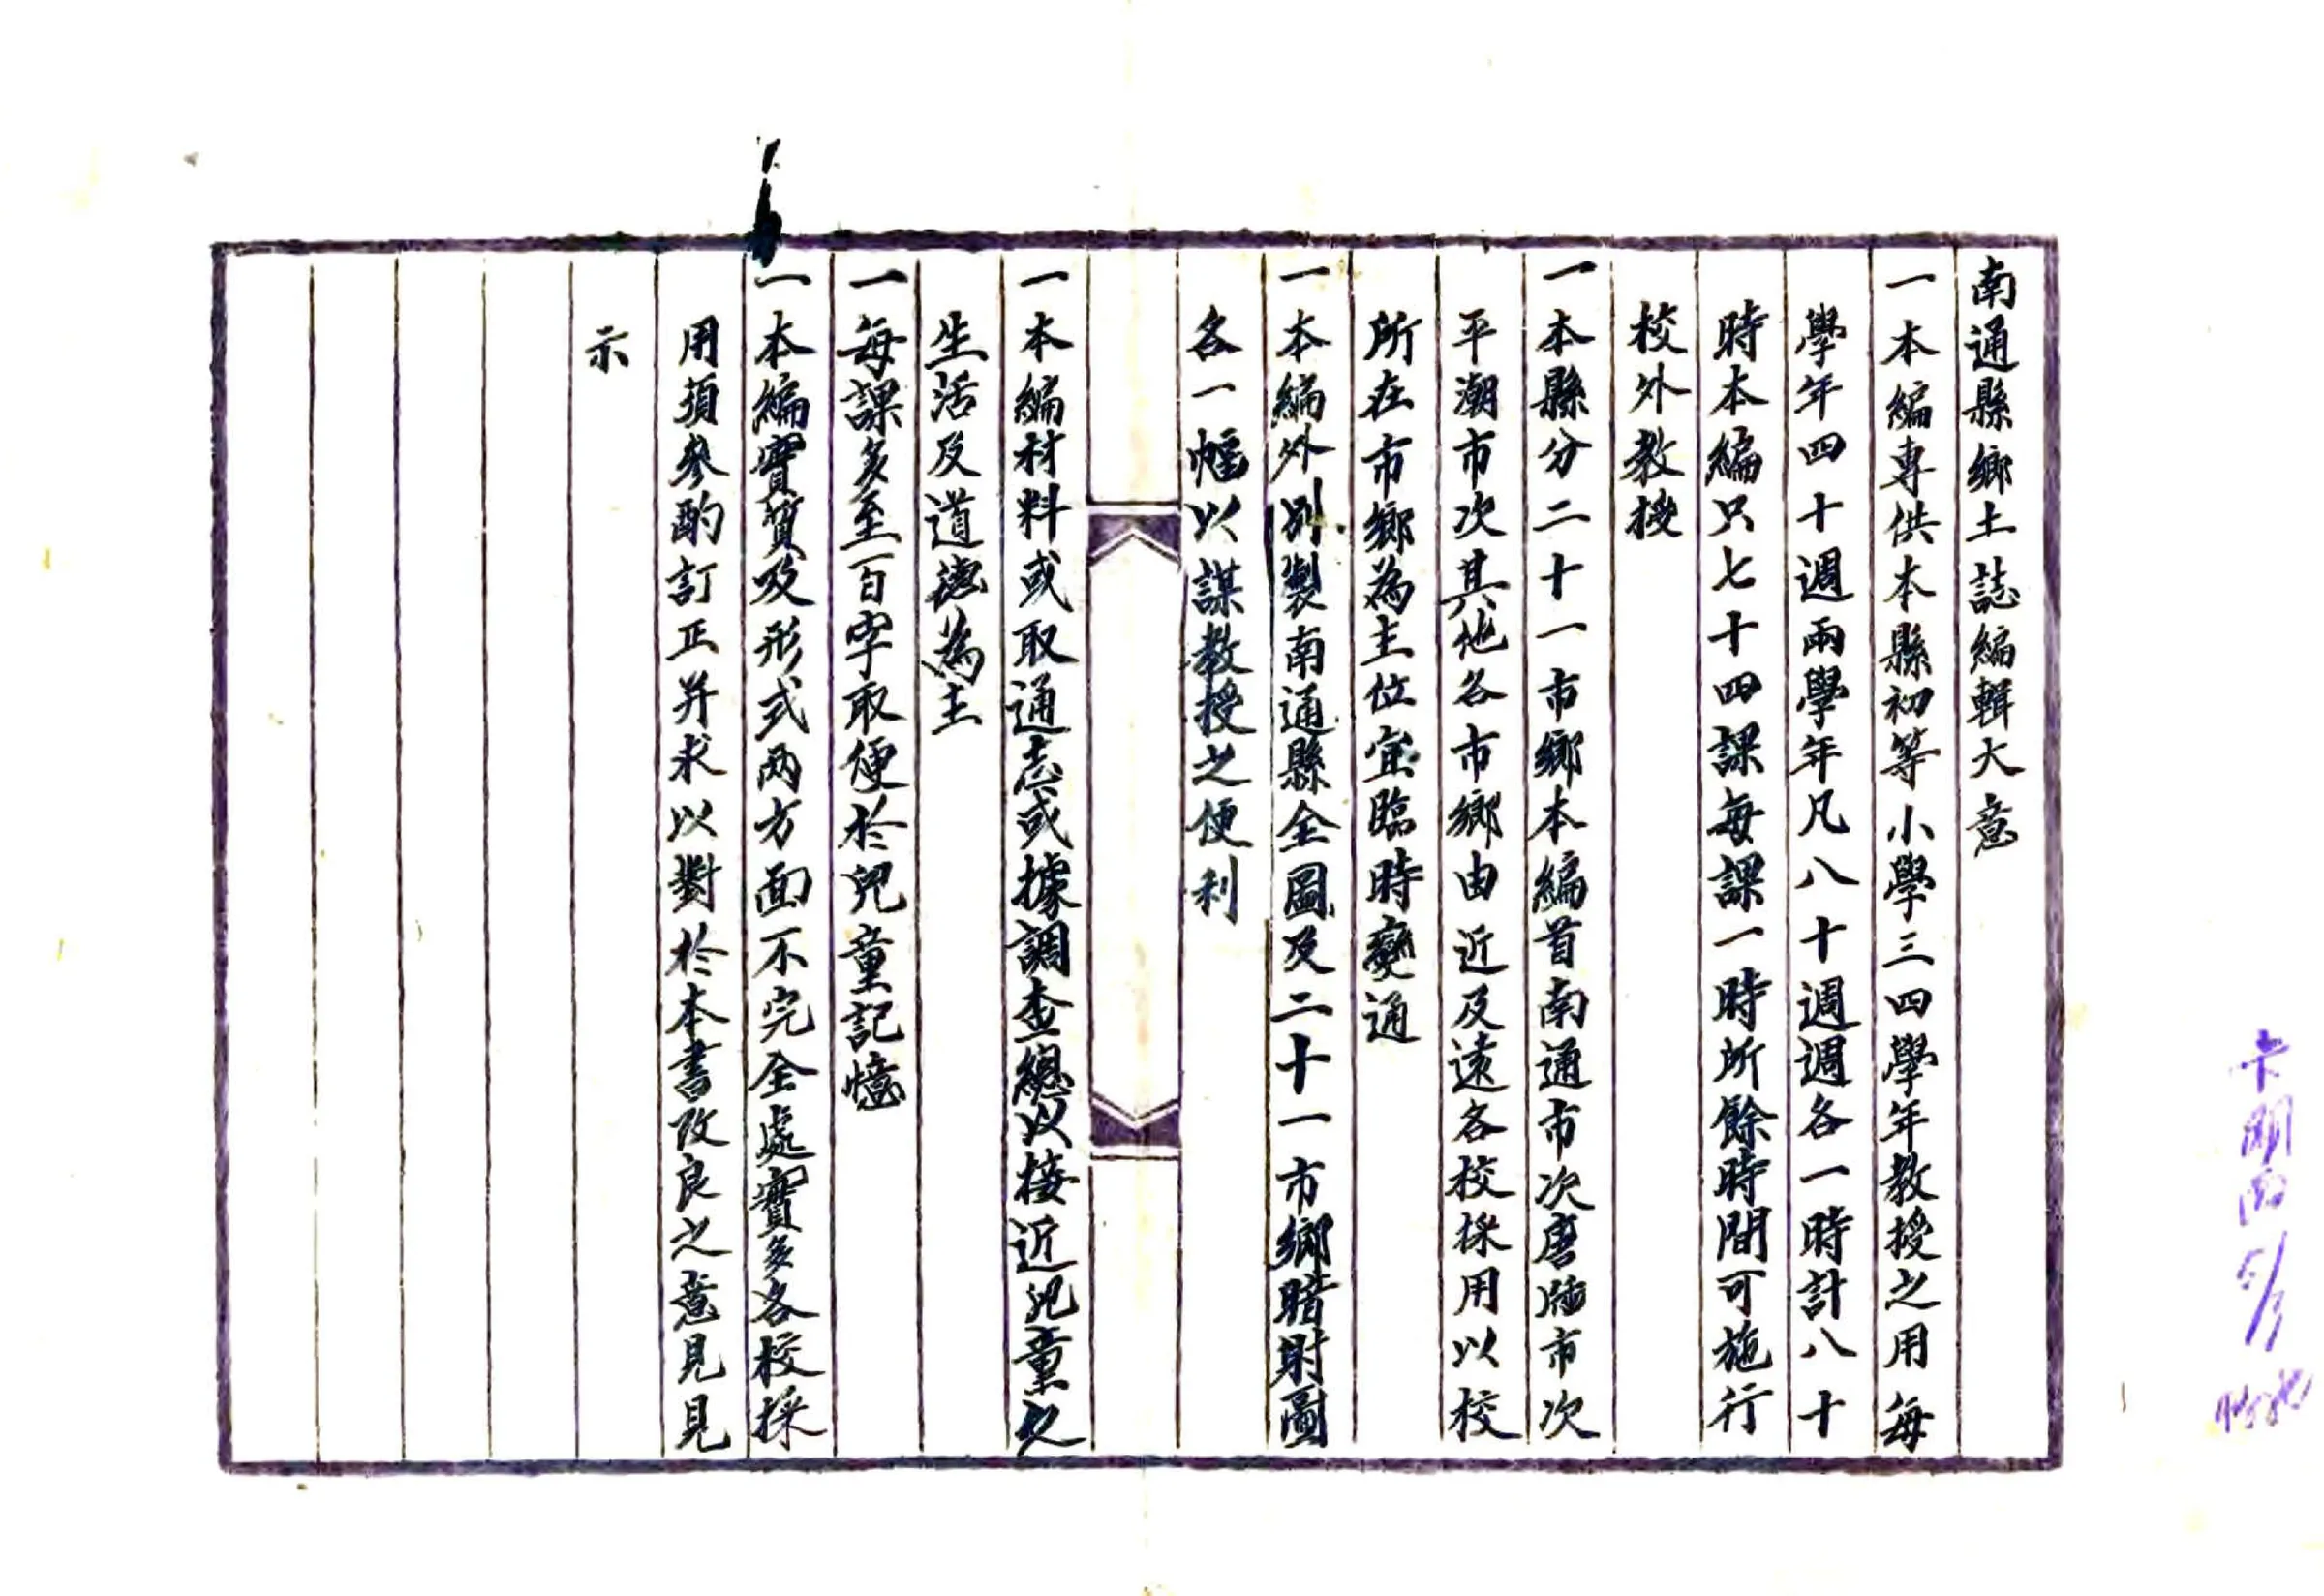 南通縣鄉土誌編輯大意
一本編專供本縣初等小學三四學年教授之用每
學年四十週兩學年凡八十週週各一時計八十
時本編只七十四課每課一時所餘時間可施行
校外教授
一本縣分二十一市鄉本編首南通市次唐閘市次
平潮市次其他各市鄉由近及遠各校採用以校
所在市鄉為主位宜臨時變通
一本編外別製南通縣全圖及二十一市鄉暗射圖
各一幅以謀教授之便利
一本編材料或取通志或據調查總以接近兒童之
生活及道德為主
一每課多至一百字取便於兒童記憶
一本編實質及形式兩方面不完全處實多各校採
用須參酌訂正并求以對於本書改良之意見見
示